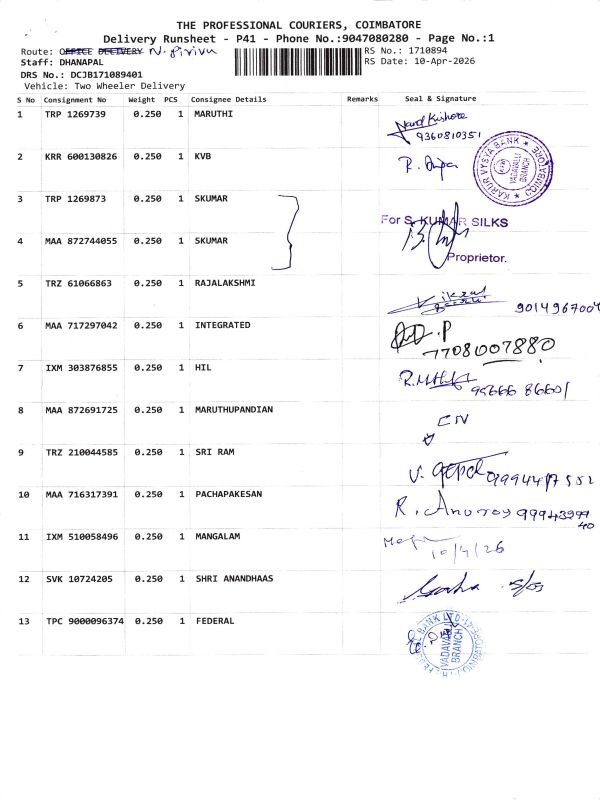 THE PROFESSIONAL COURIERS, COIMBATORE
Delivery Runsheet - P41 - Phone No.:9047080280 - Page No.:1
Route: OFFICE DELIVERY N. Pirivu
RS No.: 1710894
Staff: DHANAPAL
RS Date: 10-Apr-2026
DRS No.: DCJB171089401
Vehicle: Two Wheeler Delivery
S No Consignment No Weight PCS Consignee Details Remarks Seal & Signature
1 TRP 1269739 0.250 1 MARUTHI
Nand Kishore
9360810351
2 KRR 600130826 0.250 1 KVB
KARUR VYSYA BANK
VADAVALLI
BRANCH
COIMBATORE
3 TRP 1269873 0.250 1 SKUMAR
For S. KUMAR SILKS
4 MAA 872744055 0.250 1 SKUMAR
Proprietor.
5 TRZ 61066863 0.250 1 RAJALAKSHMI
6 MAA 717297042 0.250 1 INTEGRATED
7708007880
7 IXM 303876855 0.250 1 HIL
8 MAA 872691725 0.250 1 MARUTHUPANDIAN
9 TRZ 210044585 0.250 1 SRI RAM
V. Gopal
10 MAA 716317391 0.250 1 PACHAPAKESAN
11 IXM 510058496 0.250 1 MANGALAM
10/4/26
12 SVK 10724205 0.250 1 SHRI ANANDHAAS
13 TPC 9000096374 0.250 1 FEDERAL
VADAVALLI
BRANCH